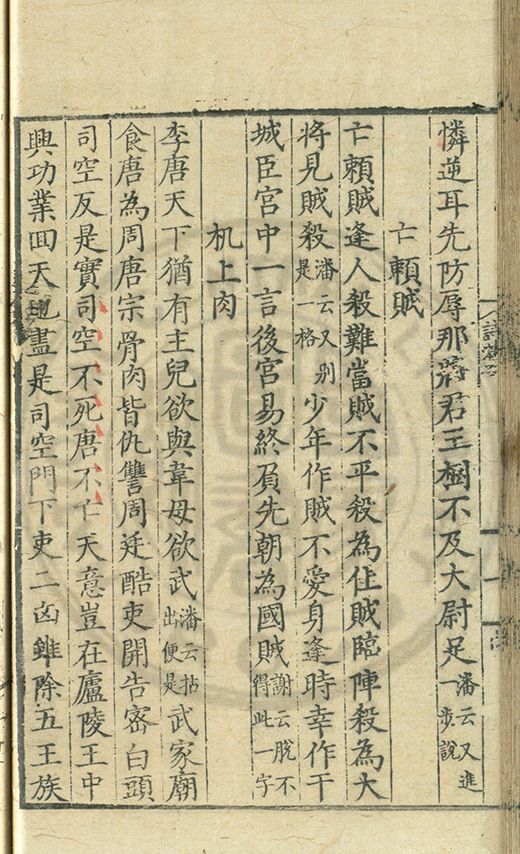 憐逆耳先防辱那將君王梱不及大尉足潘云又進一步說
亡賴賊
亡賴賊逢人殺難當賊不平殺為佳賊臨陣殺為大
將見賊殺潘云又別是一格少年作賊不愛身逢時幸作干
城臣宮中一言後宮易終負先朝為國賊謝云脫不得此一字
机上肉
李唐天下猶有主兒欲與韋母欲武潘云拈出便是武家廟
食唐為周唐宗骨肉皆仇讐周廷酷吏開告密白頭
司空反是實司空不死唐不亡天意豈在廬陵王中
興功業回天地盡是司空門下吏二凶雖除五王族